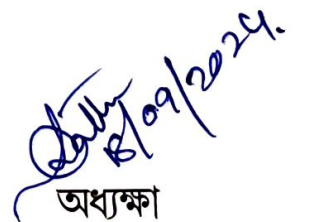 18/09/2024.
অধ্যক্ষা